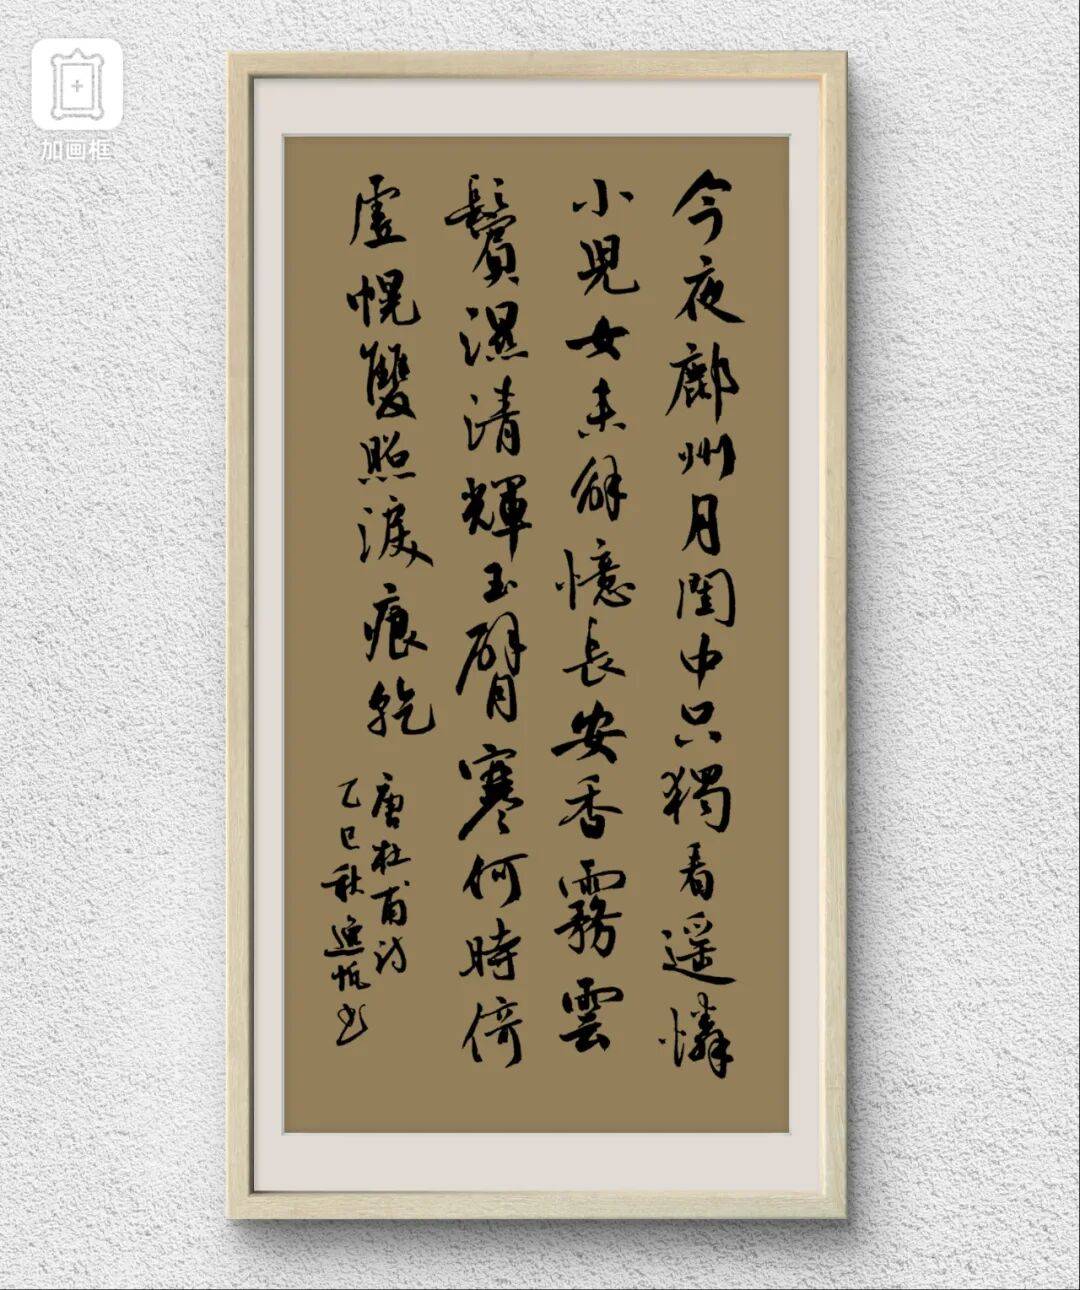 今夜鄜州月閨中只獨看遥憐
小兒女未解憶長安香霧雲
鬢濕清輝玉臂寒何時倚
虛幌雙照淚痕乾
唐杜甫詩
乙巳秋逸帆书
加画框